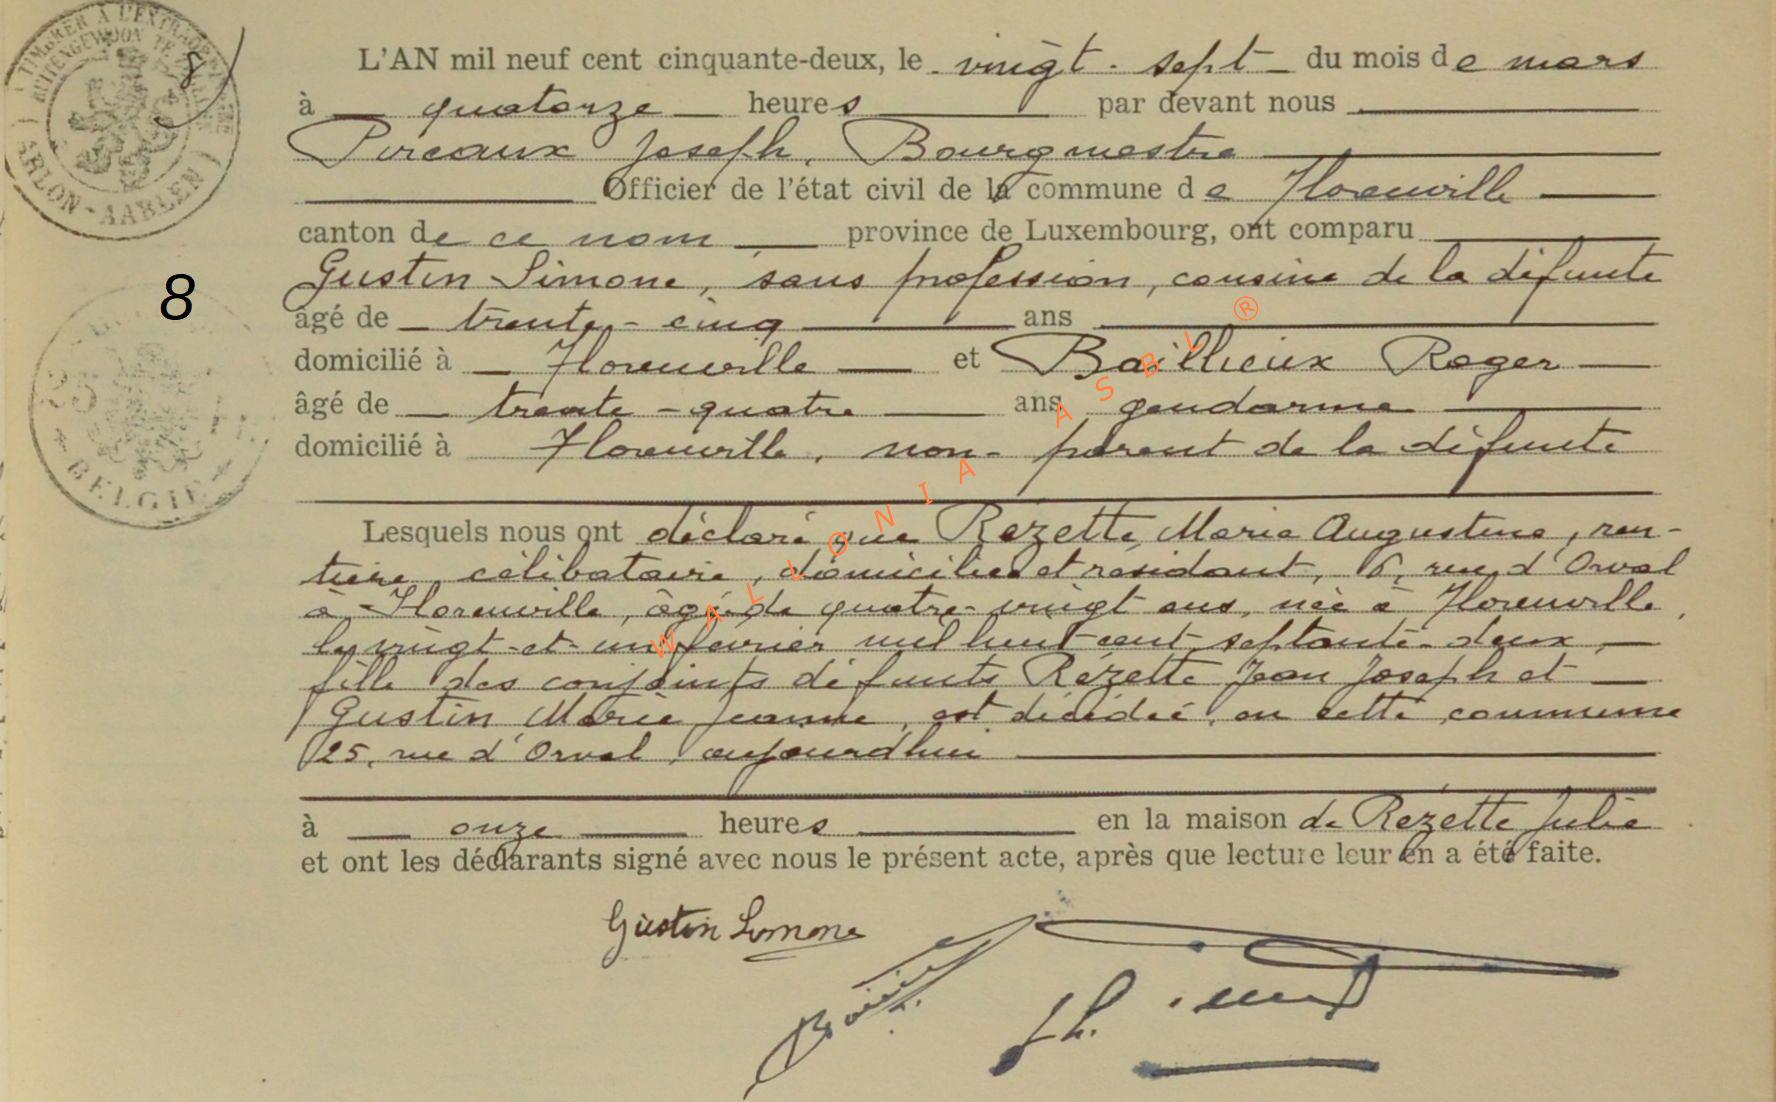 TIMBRER A L'EXTRAORDINAIRE
BUITENGEWOON TE ZEGELEN
ARLON-AARLEN
8
8
25
BELGIE
L'AN mil neuf cent cinquante-deux, le vingt-sept du mois de mars
à quatorze heures par devant nous
Pireaux Joseph, Bourgmestre
Officier de l'état civil de la commune de Florenville
canton de ce nom province de Luxembourg, ont comparu
Gustin Simone, sans profession, cousine de la défunte
âgé de trente-cinq ans
domicilié à Florenville et Baillieux Roger
âgé de trente-quatre ans gendarme
domicilié à Florenville, non-parent de la défunte
Lesquels nous ont déclaré que Rézette, Marie Augustine, ren-
tière, célibataire, domiciliée et résidant, 6, rue d'Orval
à Florenville, âgée de quatre-vingt ans, née à Florenville,
le vingt-et-un février mil huit cent septante-deux,
fille des conjoints défunts Rézette Jean Joseph et
Gustin Marie Jeanne, est décédée, en cette commune
25, rue d'Orval, aujourd'hui
à onze heures en la maison de Rézette Julie
et ont les déclarants signé avec nous le présent acte, après que lecture leur en a été faite.
Gustin Simone
WALLONIA ASBL ®